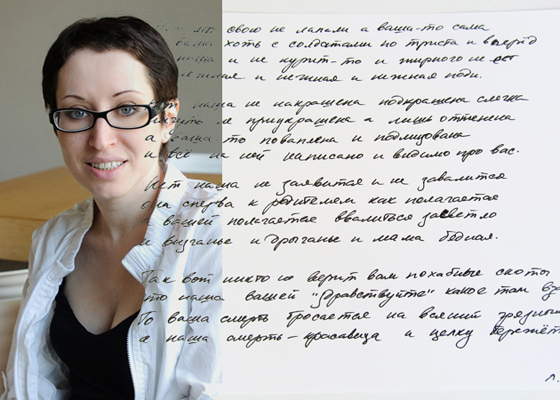 мы свою не лапали а ваша-то сама
ваша хоть с солдатами по триста в
наша и не курит-то и жирного не ест
и нежная и нежная поди.
наша не накрашена подкрашена слегка
не приукрашена а лишь оттенена
а ваша то поваплена и
и всё на ней написано и видимо про вас.
Нет наша не заявится и не завалится
она сперва к родителям как полагается
а вашей полагается ввалиться засветло
и визганье и дрыганье и мама бедная.
Так вот никто не верит вам похабные скоты
что наша вашей "Здравствуйте" какое там
То ваша смерть бросается на всякий
а наша смерть-красавица и целку бережёт